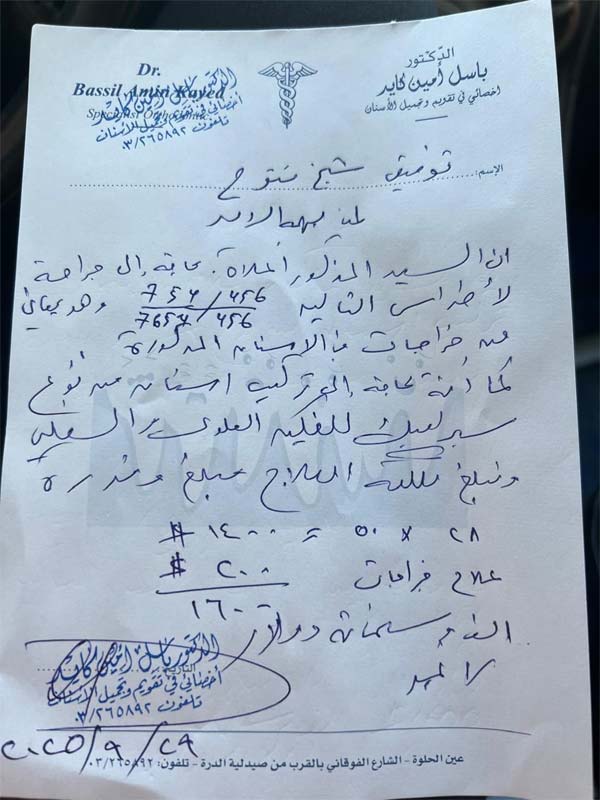 Dr.
Bassil Amin Kayed
Specialist Orthodontics
الدكتور باسل أمين كايد
أخصائي في تقويم وتجميل الأسنان
تلفون: ٠٣/٢٦٥٨٩٢
الدكتور
باسل أمين كايد
اخصائي في تقويم وتجميل الأسنان
الإسم: توفيق شيخ
لمن يهمه الامر
ان السيد المذكور أعلاه بحاجة إلى جراحة
لأضراس التالية 754/456 وهو يعاني
7654/456
من خراجات في الاسنان المذكورة
كما أنه بحاجة إلى تركيب اسنان من نوع
سيراميك للفكين العلوي و السفلي
وتبلغ تكلفة العلاج مبلغ وقدره
٢٨ × ٥٠ = ١٤٠٠ $
علاج خراجات ٢٠٠ $
١٦٠٠
الف و ستمائة دولار
لا غير
التاريخ:
الدكتور باسل أمين كايد
أخصائي في تقويم وتجميل الأسنان
تلفون: ٠٣/٢٦٥٨٩٢
٢٠٢٥/٩/٢٩
عين الحلوة - الشارع الفوقاني بالقرب من صيدلية الدرة - تلفون: ٠٣/٢٦٥٨٩٢